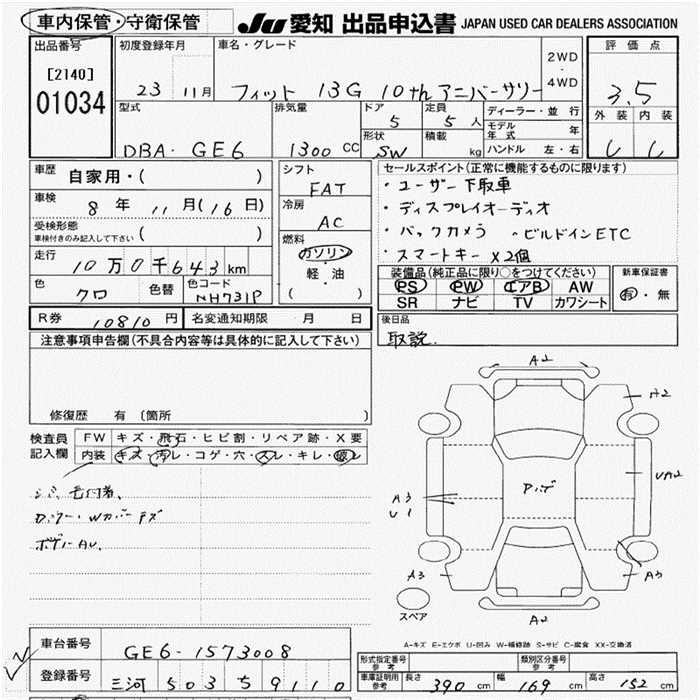 車内保管・守衛保管 JU 愛知 出品申込書 JAPAN USED CAR DEALERS ASSOCIATION
出品番号 初度登録年月 車名・グレード 2WD・4WD 評価点
[2140]
01034
23 11月 フィット 13G 10th アニバーサリー 3.5
型式 排気量 ドア 定員 ディーラー・並行 外装 内装
DBA・GE6 1300 CC 5 5人 モデル年式 年
形状 積載 ハンドル 左・右
SW kg
車歴 自家用・( ) シフト セールスポイント(正常に機能するものに限ります)
FAT ・ユーザー下取車
車検 8年 11月(16日) 冷房 ・ディスプレイオーディオ
受検形態 車検付きのみ記入して下さい ( ) AC ・バックカメラ ・ビルドインETC
走行 10万0千643km 燃料 ・スマートキー×2個
ガソリン・軽・油 ( )
装備品(純正品に限り○をつけてください) 新車保証書
色 クロ 色替 色コード NH731P PS PW エアB AW 有・無
SR ナビ TV カワシート
R券 10810円 名変通知期限 月 日 後日品
取説.
注意事項申告欄(不具合内容等は具体的に記入して下さい)
修復歴 有(箇所
検査員記入欄 FW キズ・飛石・ヒビ割・リペア跡・X要
内装 キズ・汚レ・コゲ・穴・スレ・キレ・破レ
A2
A2
UA2
A3
U1
A3
A3
A2
スペア
A-キズ E-エクボ U-凹み W-補修跡 S-サビ C-腐食 XX-交換済
車台番号 GE6-1573008
形式指定番号 参考 類別区分番号 参考
登録番号 三河 503 ち 9110
車庫証明用 参考 長さ 390cm 幅 169cm 高さ 152cm